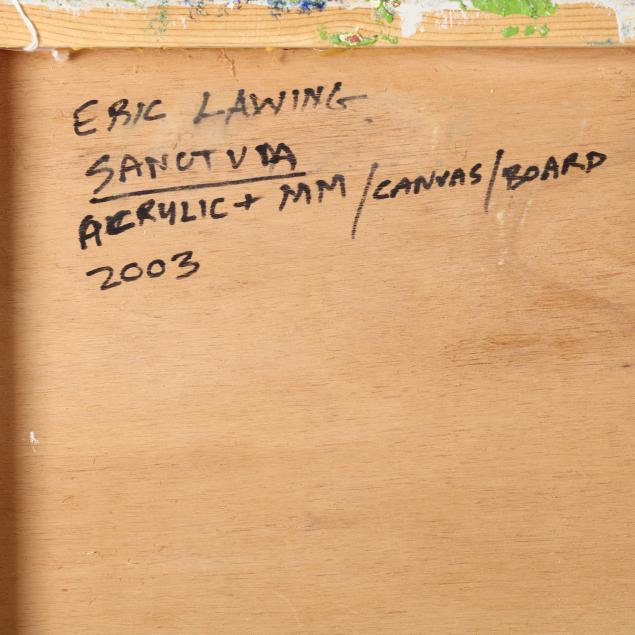 ERIC LAWING
SANCTUM
ACRYLIC + MM / CANVAS / BOARD
2003